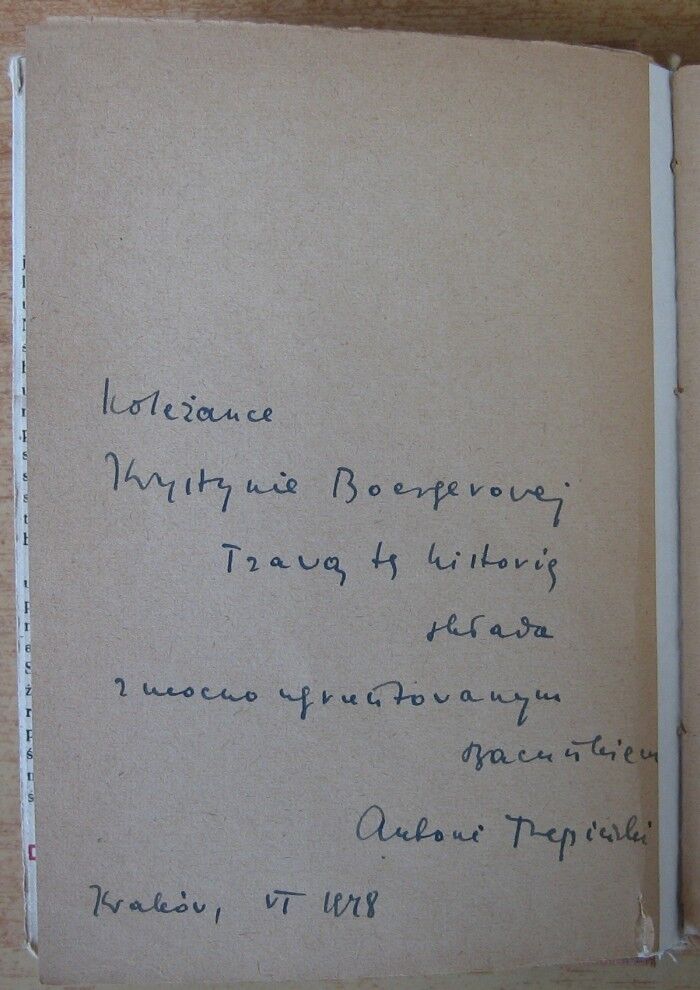 Koleżance
Krystynie Boergerowej
łzawą tę historię
składa
z mocno ugruntowanym
szacunkiem
Antoni Trepiński
Kraków, VI 1978